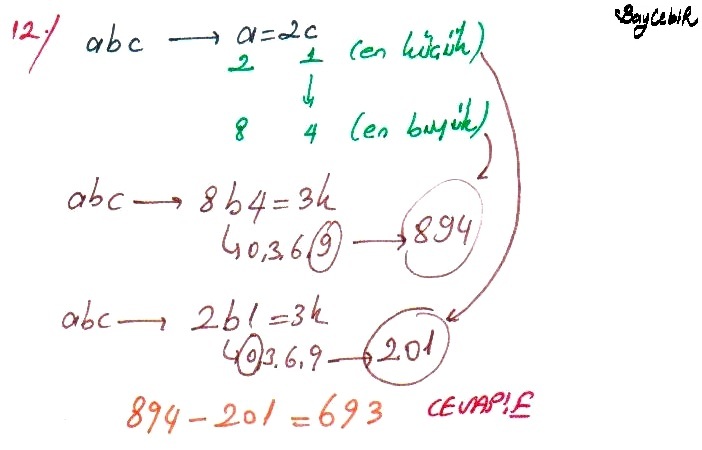 BayCebiR
12-) abc → a=2c
2 1 (en küçük)
↓
8 4 (en büyük)
abc → 8b4=3k
↳0,3,6,9 → 894
abc → 2b1=3k
↳0,3,6,9 → 201
894-201=693 CEVAP:E